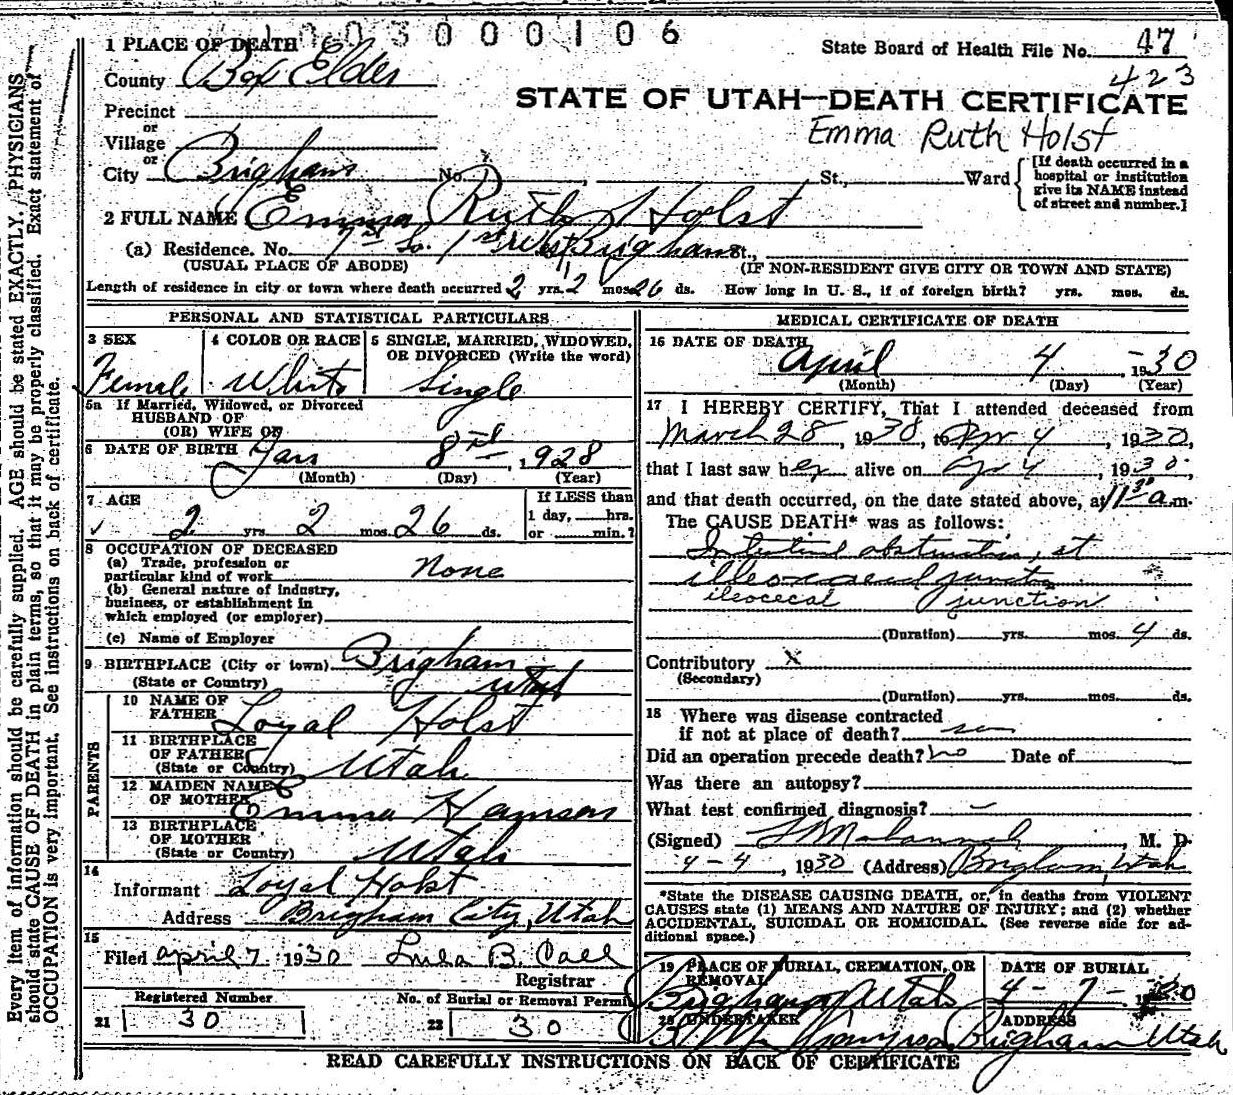 1003000106
State Board of Health File No. 47
423
STATE OF UTAH—DEATH CERTIFICATE
Emma Ruth Holst
1 PLACE OF DEATH
County Box Elder
Precinct
or
Village
or
City Brigham No. , St., Ward
[If death occurred in a
hospital or institution
give its NAME instead
of street and number.]
2 FULL NAME Emma Ruth Holst
(a) Residence. No. 7 St So. 1st West Brigham St.,
(USUAL PLACE OF ABODE) (IF NON-RESIDENT GIVE CITY OR TOWN AND STATE)
Length of residence in city or town where death occurred 2 yrs. 2 mos. 26 ds. How long in U. S., if of foreign birth? yrs. mos. ds.
PERSONAL AND STATISTICAL PARTICULARS
3 SEX
Female
4 COLOR OR RACE
White
5 SINGLE, MARRIED, WIDOWED,
OR DIVORCED (Write the word)
Single
5a If Married, Widowed, or Divorced
HUSBAND OF
(OR) WIFE OF
6 DATE OF BIRTH Jan 8 , 1928
(Month) (Day) (Year)
7 AGE
2 yrs 2 mos. 26 ds.
If LESS than
1 day, hrs.
or min.?
8 OCCUPATION OF DECEASED
(a) Trade, profession or
particular kind of work None
(b) General nature of industry,
business, or establishment in
which employed (or employer)
(c) Name of Employer
9 BIRTHPLACE (City or town) Brigham
(State or Country) Utah
PARENTS
10 NAME OF
FATHER Loyal Holst
11 BIRTHPLACE
OF FATHER
(State or Country) Utah
12 MAIDEN NAME
OF MOTHER Emma Hansen
13 BIRTHPLACE
OF MOTHER
(State or Country) Utah
14
Informant Loyal Holst
Address Brigham City, Utah
15
Filed April 7 1930 Lula B. Call
Registrar
Registered Number
21 30
No. of Burial or Removal Permit
22 30
MEDICAL CERTIFICATE OF DEATH
16 DATE OF DEATH
April 4 , 1930
(Month) (Day) (Year)
17 I HEREBY CERTIFY, That I attended deceased from
March 28, 1930, to Apr 4, 1930,
that I last saw her alive on Apr 4, 1930
and that death occurred, on the date stated above, at 11 30 a.m.
The CAUSE DEATH* was as follows:
Intestinal obstruction, at
illeocaecal junction
ileocecal junction
(Duration) yrs. mos. 4 ds.
Contributory X
(Secondary)
(Duration) yrs. mos. ds.
18 Where was disease contracted
if not at place of death?
Did an operation precede death? No Date of
Was there an autopsy?
What test confirmed diagnosis? –
(Signed) , M. D.
4-4, 1930 (Address) Brigham, Utah
*State the DISEASE CAUSING DEATH, or, in deaths from VIOLENT
CAUSES state (1) MEANS AND NATURE OF INJURY; and (2) whether
ACCIDENTAL, SUICIDAL OR HOMICIDAL. (See reverse side for ad-
ditional space.)
19 PLACE OF BURIAL, CREMATION, OR
REMOVAL
Brigham, Utah
DATE OF BURIAL
4-7-1930
20 UNDERTAKER
ADDRESS
Brigham Utah
READ CAREFULLY INSTRUCTIONS ON BACK OF CERTIFICATE
Every item of information should be carefully supplied. AGE should be stated EXACTLY. PHYSICIANS
should state CAUSE OF DEATH in plain terms, so that it may be properly classified. Exact statement of
OCCUPATION is very important. See instructions on back of certificate.